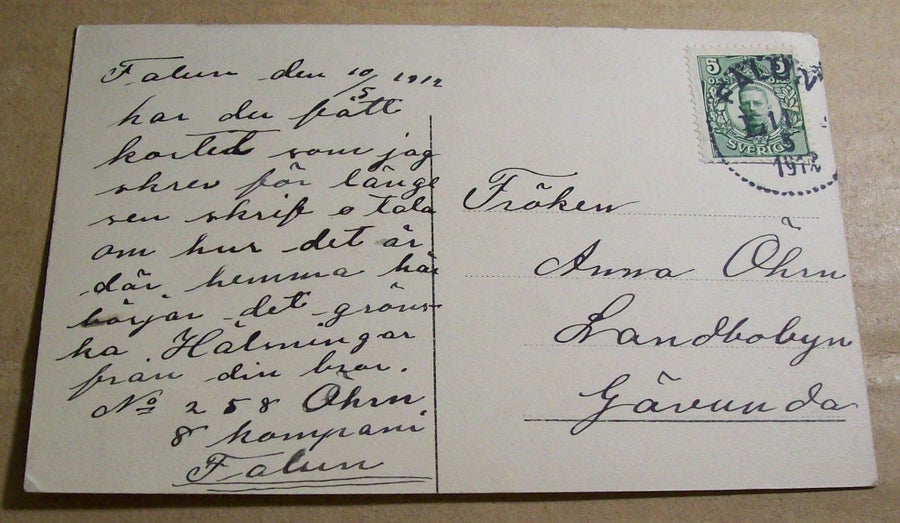 Falun den 10/5 1912
har du fått
kortet som jag
skrev för länge
sen skrif o tala
om hur det är
där hemma här
börjar det gröns-
ka. Hälsningar
från din bror.
No 258 Öhrn
8 kompani
Falun
5 5
SVERIGE
FALUN
11
5
1912
Fröken
Anna Öhrn
Landbobyn
Gävunda